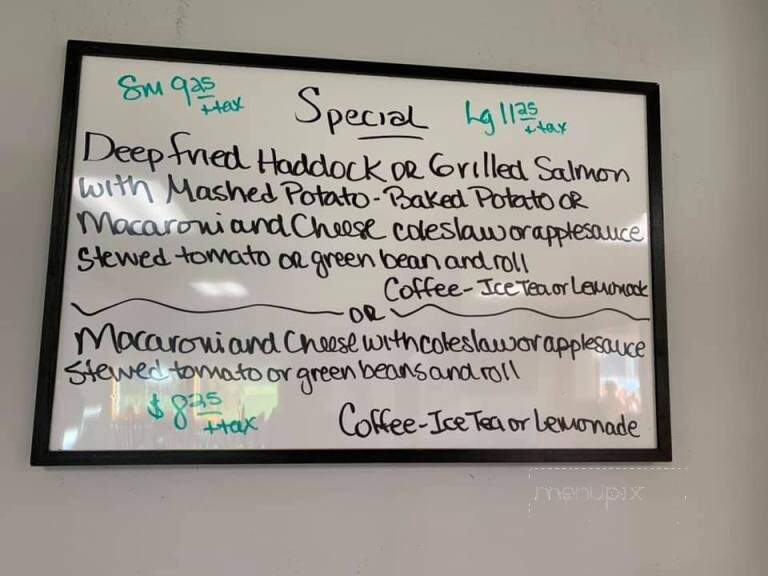 Sm 9.25 + tax
Special
Lg 11.25 + tax
Deep fried Haddock OR Grilled Salmon
with Mashed Potato - Baked Potato OR
Macaroni and Cheese coleslaw or applesauce
Stewed tomato or green bean and roll
Coffee - Ice Tea or Lemonade
OR
Macaroni and Cheese with coleslaw or applesauce
Stewed tomato or green beans and roll
$8.25 + tax
Coffee - Ice Tea or Lemonade
menupix